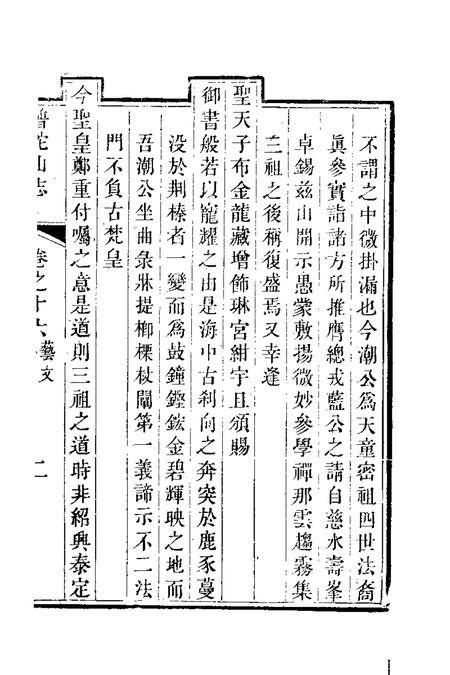 不謂之中微掛漏也今潮公爲天童密祖四世法裔
眞參實詣諸方所推膺總戎藍公之請自慈水壽峯
卓錫兹山開示愚蒙敷揚微妙參學禪那雲趨霧集
三祖之後稱復盛焉又幸逢
聖天子布金龍藏增飾琳宮紺宇且頒賜
御書般若以寵耀之由是海中古刹向之奔突於鹿豕蔓
没於荆榛者一變而爲鼓鐘鏗鋐金碧輝映之地而
吾潮公坐曲彔牀提榔樑杖闡第一義諦示不二法
門不負古梵皇
今聖皇鄭重付囑之意是道則三祖之道時非紹興泰定
普陀山志
卷之十六
藝文
二